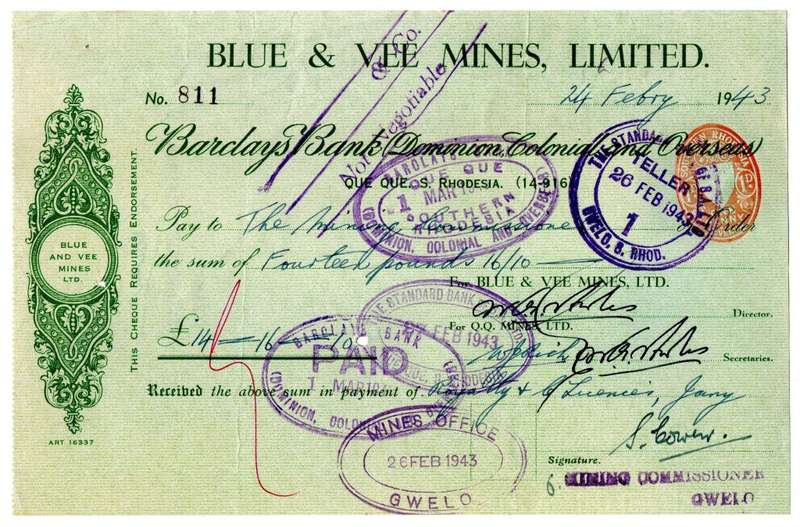 BLUE & VEE MINES, LIMITED.
& Co.
Not Negotiable
No. 811
24 Febry 1943
Barclays Bank (Dominion, Colonial and Overseas)
QUE QUE, S. RHODESIA. (14-916)
BARCLAYS
QUE QUE
1 MAR
SOUTHERN
RHODESIA
(DOMINION, COLONIAL AND OVERSEAS)
THE STANDARD
TELLER
26 FEB 1943
1
GWELO, S. RHOD.
Pay to The Mining Commissioner or Order
the sum of Fourteen pounds 16/10
For BLUE & VEE MINES, LTD.
Director.
For Q.Q. MINES, LTD.
Secretaries.
£14-16-10
THE STANDARD BANK
FEB 1943
BARCLAYS BANK
PAID
1 MAR
(DOMINION, COLON
Received the above sum in payment of Royalty & Licences, Jany
MINES OFFICE
26 FEB 1943
GWELO
S. Cowen.
Signature.
MINING COMMISSIONER
GWELO
BLUE
AND VEE
MINES
LTD.
THIS CHEQUE REQUIRES ENDORSEMENT.
ART 16337